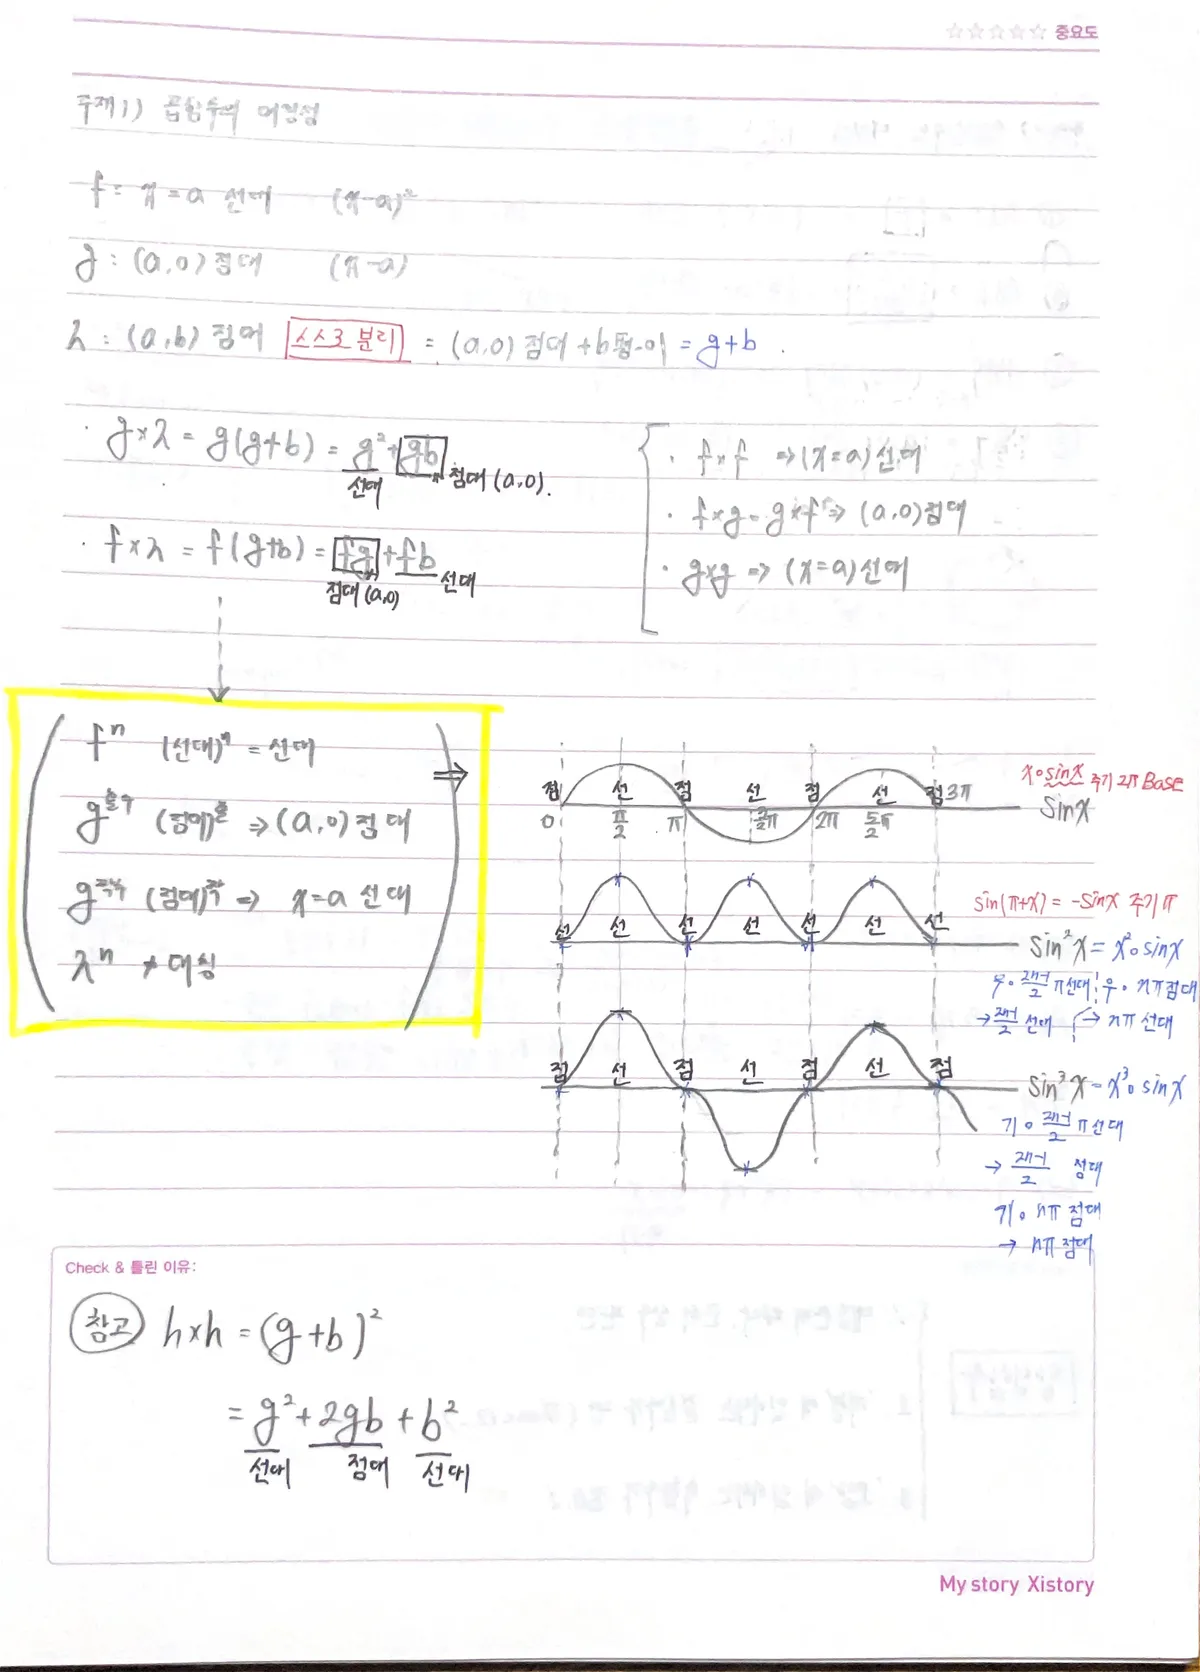 ☆☆☆☆☆ 중요도
주제1) 곱함수의 대칭성
f : x = a 선대 (x-a)²
g : (a,0) 점대 (x-a)
h : (a,b) 점대 스스로 분리 = (a,0) 점대 + b평이 = g+b
· g×h = g(g+b) = g² + gb
선대 점대 (a,0).
· f×h = f(g+b) = fg + fb
점대 (a,0) 선대
· f×f ⇒ (x=a) 선대
· f×g = g×f ⇒ (a,0) 점대
· g×g ⇒ (x=a) 선대
fⁿ (선대)ⁿ = 선대
g홀수 (점대)홀 ⇒ (a,0) 점대
g짝수 (점대)짝 ⇒ x=a 선대
hⁿ ≠ 대칭
⇒
x∘sinx 주기 2π Base
점 선 점 선 점 선 점 3π
sinx
0 π/2 π 3/2π 2π 5/2π
sin(π+x) = -sinx 주기 π
선 선 선 선 선 선 선
sin²x = x²∘sinx
우∘(2n-1)/2 π선대 우∘nπ점대
→ (2n-1)/2 선대 → nπ 선대
점 선 점 선 점 선 점
sin³x = x³∘sinx
기∘(2n-1)/2 π선대
→ (2n-1)/2 점대
기∘nπ 점대
→ nπ 점대
Check & 틀린 이유:
참고 h×h = (g+b)²
= g² + 2gb + b²
선대 점대 선대
My story Xistory